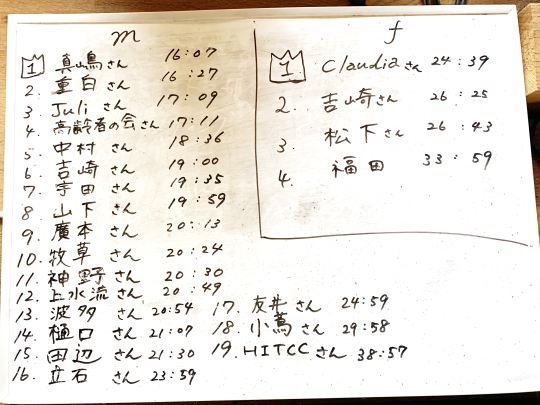 m
1 真嶋さん 16:07
2. 重白さん 16:27
3. Juliさん 17:09
4. 高齢者の会さん 17:11
5 中村さん 18:36
6. 吉崎さん 19:00
7. 宇田さん 19:35
8. 山下さん 19:59
9. 廣本さん 20:13
10. 牧草さん 20:24
11. 神野さん 20:30
12. 上水流さん 20:49
13. 波多さん 20:54
14. 樋口さん 21:07
15. 田辺さん 21:30
16. 立石さん 23:59
17. 友井さん 24:59
18. 小蔦さん 29:58
19. HITCCさん 38:57
f
1 Claudiaさん 24:39
2. 吉崎さん 26:25
3. 松下さん 26:43
4. 福田 33:59